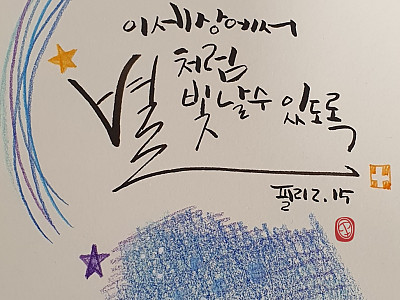 이 세상에서
별처럼
빛날 수 있도록
빌리 2.15